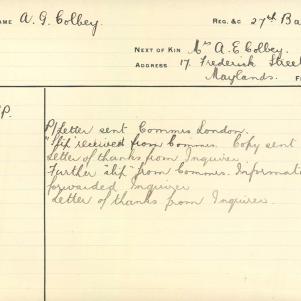 NAME A. G. Colbey. REG. &c 27th Ba
NEXT OF KIN Mrs A. E. Colbey.
ADDRESS 17. Frederick Street
Maylands. F
P.
P/Letter sent Commrs London.
"Slip" received from Commrs. Copy sent
Letter of thanks from Inquirer
Further "slip" from Commrs. Informat
forwarded Inquirer
Letter of thanks from Inquirer.